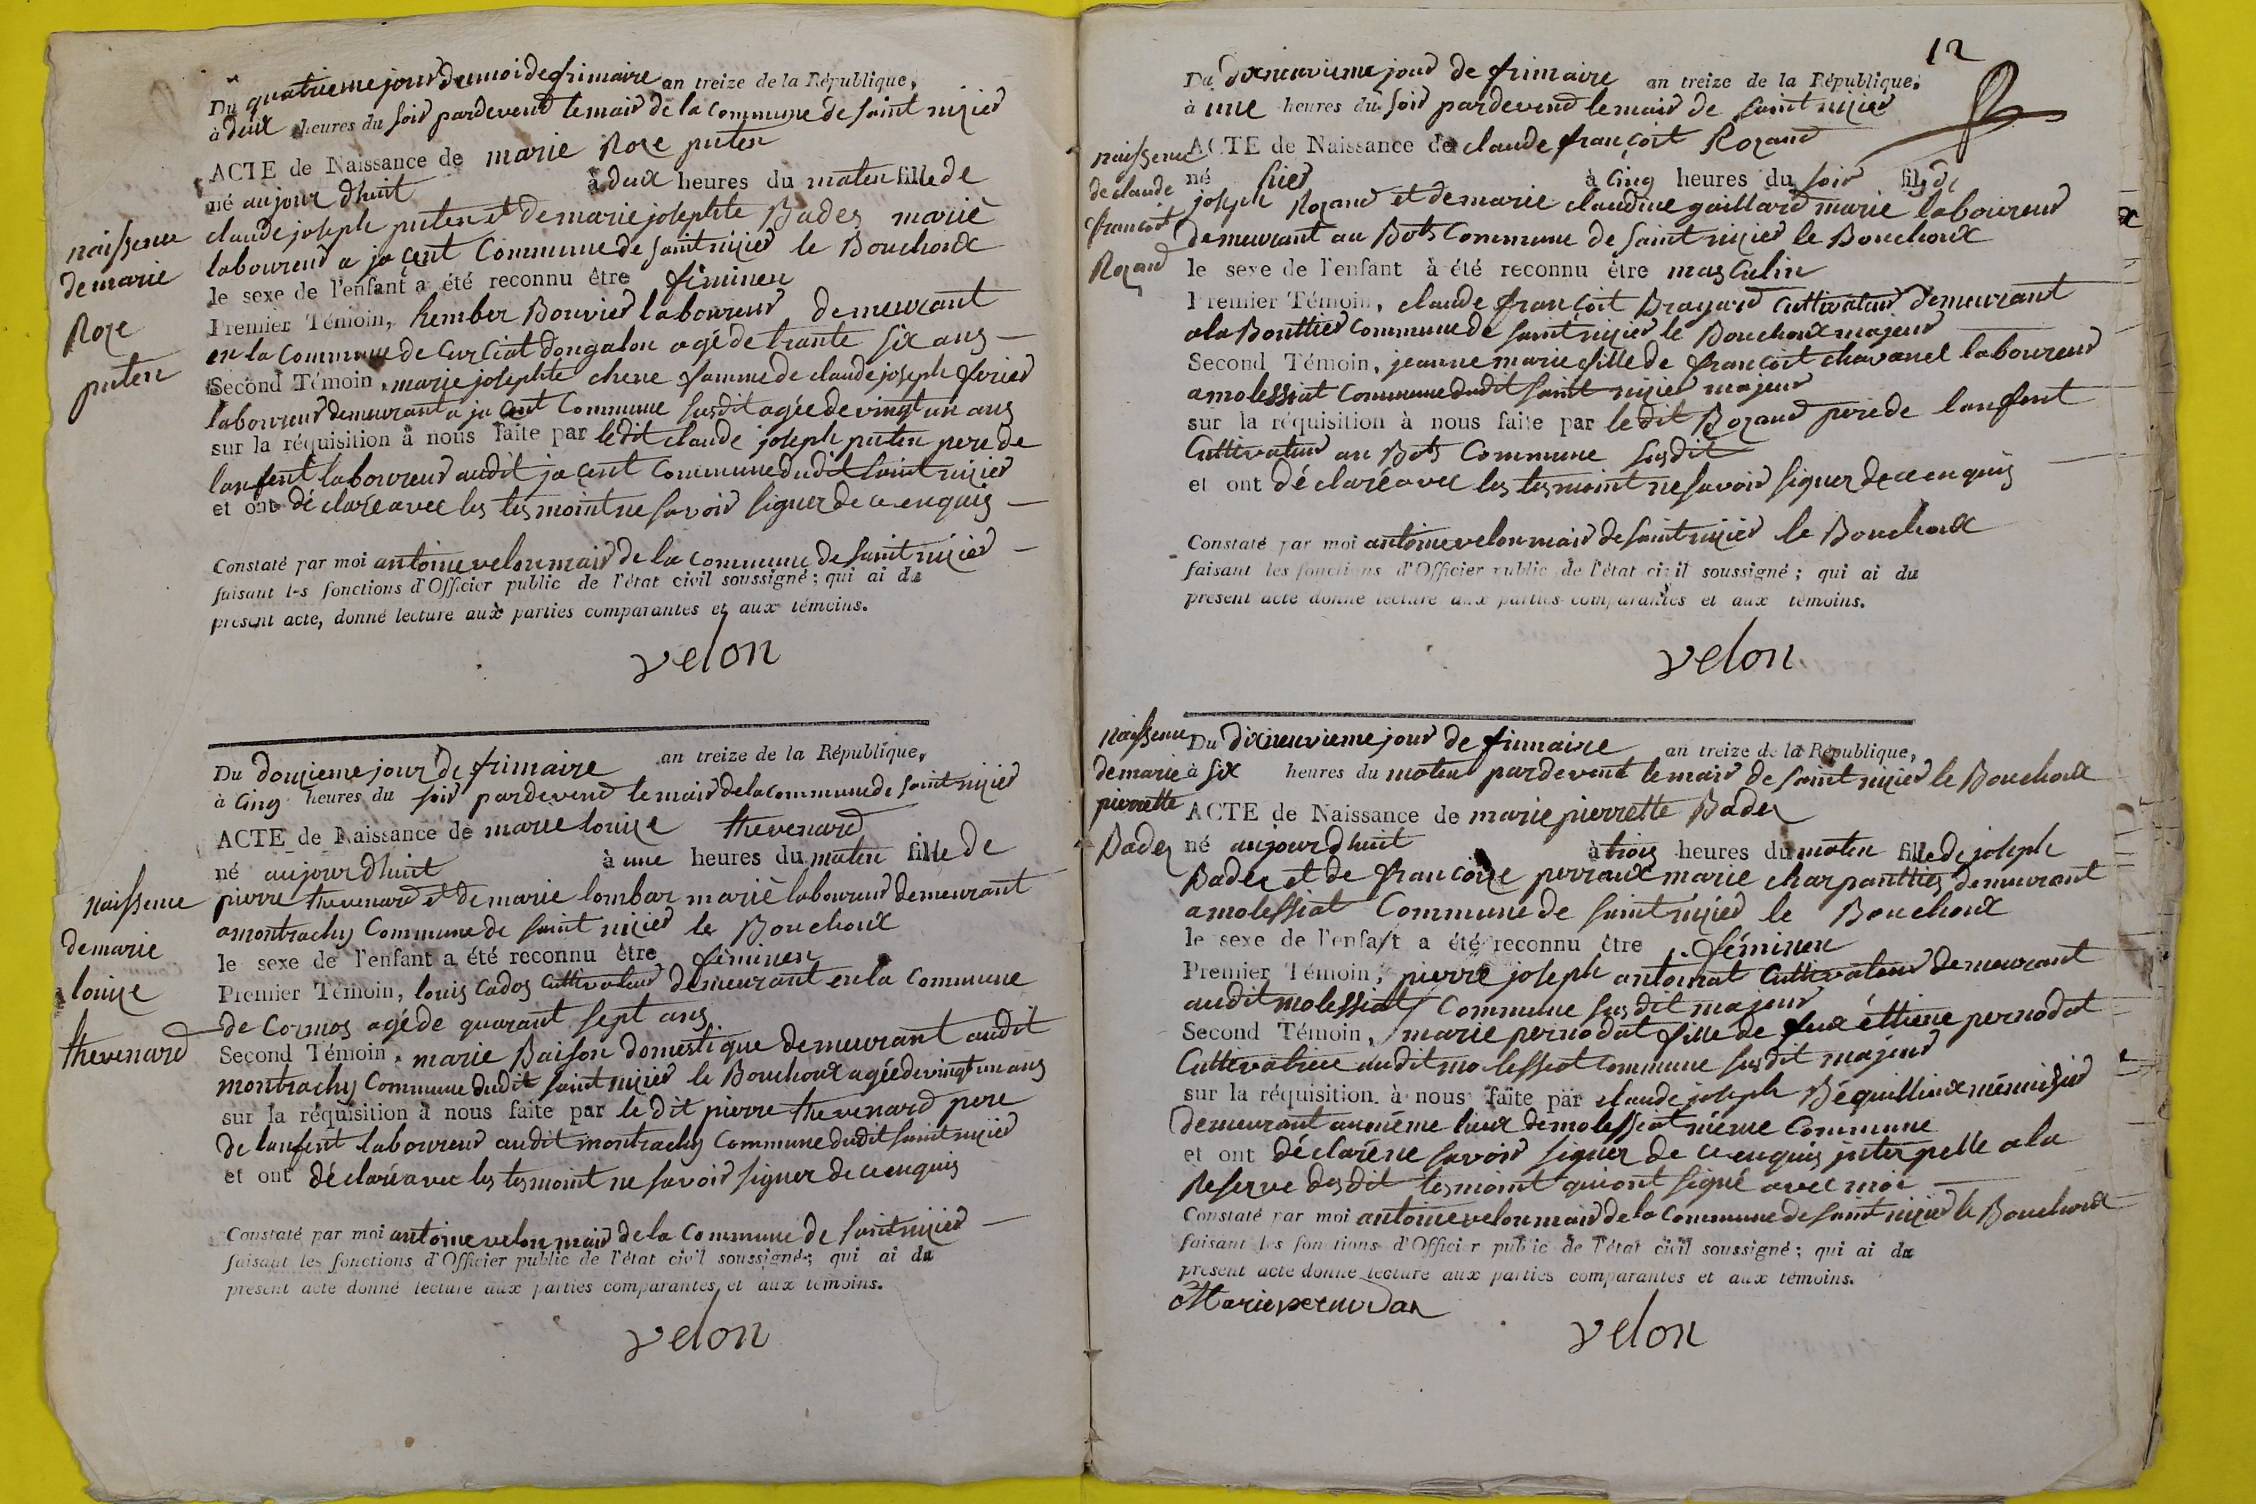 Du quatrieme jour du moi de frimaire an treize de la République,
à deux heures du soir pardevend le mair de la commune de saint nizier
ACTE de Naissance de marie Roze puten
né aujour dhuit à deux heures du maten fille de
claude joseph puten et de marie josephte Badez marié
laboureur a jacent Commune de saint nizier le Bouchoux
le sexe de l'enfant a été reconnu être féminen
Premier Témoin, hember Bouvier laboureur demeurant
en la Commune de Curciat dongalon agé de trante six ans
Second Témoin, marie josephte chene famme de claude joseph ferier
laboureur demeurant a jacent Commune susdit agée de vingt un ans
sur la réquisition à nous faite par ledit claude joseph puten pere de
lanfent laboureur audit jacent Commune dudit saint nizier
et ont déclaré avec les tesmoint ne savoir signer de ce enquis
Constaté par moi antoine velon mair de la commune de saint nizier
faisant les fonctions d'Officier public de l'état civil soussigné; qui ai du
présent acte, donné lecture aux parties comparantes et aux témoins.
velon
naissence
de marie
Roze
puten
Du douzieme jour de frimaire an treize de la République,
à cinq heures du soir pardevend le mair de la commune de saint nizier
ACTE de Naissance de marie louize thevenard
né aujourdhuit à une heures du maten fille de
pierre thevenard et de marie lombar marié laboureur demeurant
a montrachy Commune de saint nizier le Bouchoux
le sexe de l'enfant a été reconnu être féminen
Premier Témoin, louis Cados Cultivateur demeurant en la Commune
de Cormos agé de quarant sept ans
Second Témoin, marie Baison domestique demeurant audit
montrachy Commune dudit saint nizier le Bouchoux agée de vingt un ans
sur la réquisition à nous faite par le dit pierre thevenard pere
de lanfent laboureur audit montrachy Commune dudit saint nizier
et ont déclaré avec les tesmoint ne savoir signer de ce enquis
Constaté par moi antoine velon mair de la Commune de saint nizier
faisant les fonctions d'Officier public de l'état civil soussigné; qui ai du
présent acte donné lecture aux parties comparantes et aux témoins.
velon
naissence
de marie
louize
thevenard
12
Du dixneuvieme jour de frimaire an treize de la République,
à une heures du soir pardevend le mair de saint nizier
ACTE de Naissance de claude françoit Rozand
né hier à cinq heures du soir fils de
joseph Rozand et de marie claudine gaillard marié laboureur
demeurant au Bots Commune de saint nizier le Bouchoux
le sexe de l'enfant à été reconnu être masculin
Premier Témoin, claude françoit Brayard Cultivateur demeurant
a la Bouttier commune de saint nizier le Bouchoux majeur
Second Témoin, jeanne marie fille de françoit chavanel laboureur
a molessiat Commune dudit saint nizier majeur
sur la réquisition à nous faite par le dit Rozand pere de lanfent
Cultivateur au Bots Commune susdit
et ont déclaré avec les tesmoint ne savoir signer de ce enquis
Constaté par moi antoine velon mair de saint nizier le Bouchoux
faisant les fonctions d'Officier public de l'état civil soussigné; qui ai du
présent acte donné lecture aux parties comparantes et aux témoins.
velon
naissence
de claude
françoit
Rozand
Du dixneuvieme jour de frimaire an treize de la République,
à six heures du maten pardevent le mair de saint nizier le Bouchoux
ACTE de Naissance de marie pierrette Badez
né aujourdhuit à trois heures du maten fille de joseph
Badez et de francoize perraux marie charpanttier demeurant
a molessiat Commune de saint nizier le Bouchoux
le sexe de l'enfant a été reconnu être féminen
Premier Témoin, pierre joseph antoinat Cultivateur demeurant
audit molessiat Commune susdit majeur
Second Témoin, marie pernodat fille de feux éttiene pernodat
Cultivatrice audit molessiat commune susdit majeur
sur la réquisition à nous faite par claude joseph Béquilliux ménuisier
demeurant au méme lieux de molessiat méme Commune
et ont déclaré ne savoir signer de ce enquis interpelle a la
Reserve desdit tesmoint qui ont signé avec moi
Constaté par moi antoine velon mair de la Commune de saint nizier le Bouchoux
faisant les fonctions d'Officier public de l'état civil soussigné; qui ai du
présent acte donné lecture aux parties comparantes et aux témoins.
velon
naissence
de marie
pierrette
Badez